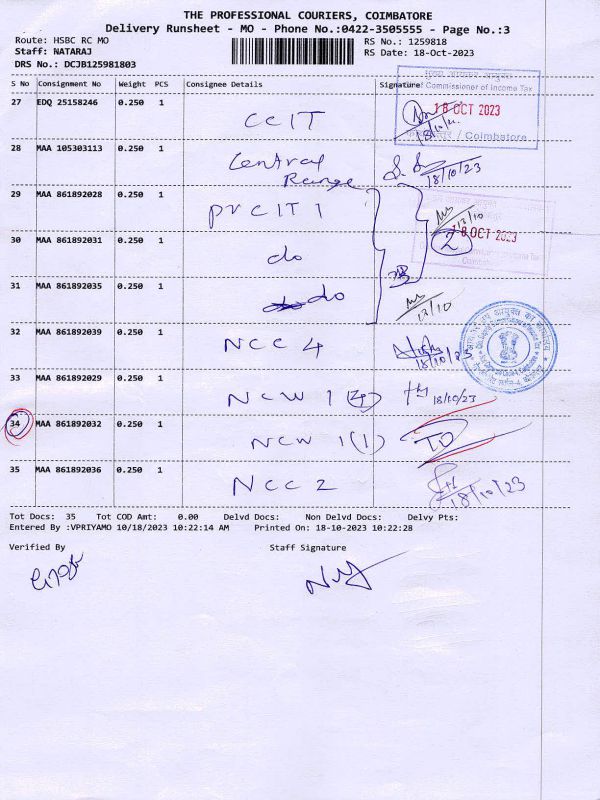 THE PROFESSIONAL COURIERS, COIMBATORE
Delivery Runsheet - MO - Phone No.:0422-3505555 - Page No.:3
Route: HSBC RC MO
RS No.: 1259818
Staff: NATARAJ
RS Date: 18-Oct-2023
DRS No.: DCJB125981803
S No Consignment No Weight PCS Consignee Details Signature
Commissioner of Income Tax
27 EDQ 25158246 0.250 1 CCIT 18 OCT 2023
18/10/
/ Coimbatore
28 MAA 105303113 0.250 1 Central Range 18/10/23
29 MAA 861892028 0.250 1 PrCIT 1 18/10
30 MAA 861892031 0.250 1 do 2 18 OCT 2023
31 MAA 861892035 0.250 1 do 18/10
32 MAA 861892039 0.250 1 NCC 4 18/10/23
33 MAA 861892029 0.250 1 NCW 1 (4) 18/10/23
34 MAA 861892032 0.250 1 NCW 1(1) TO
35 MAA 861892036 0.250 1 NCC 2 18/10/23
Tot Docs: 35 Tot COD Amt: 0.00 Delvd Docs: Non Delvd Docs: Delvy Pts:
Entered By :VPRIYAMO 10/18/2023 10:22:14 AM Printed On: 18-10-2023 10:22:28
Verified By Staff Signature